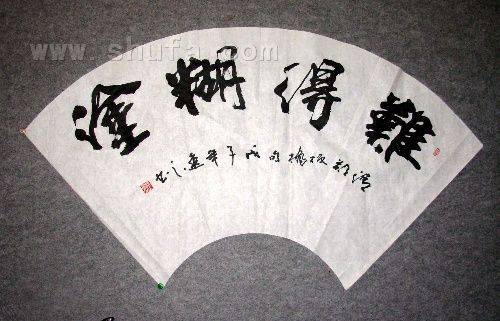 www.shufa.com
難得糊塗
清郑板橋句戊子年